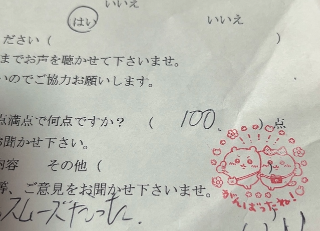 いいえ
はい いいえ
ださい( )
までお声を聴かせて下さいませ。
いのでご協力お願いします。
点満点で何点ですか? ( 100 )点
お聞かせ下さい。
内容 その他(
等、ご意見をお聞かせ下さいませ。
がんばったね!
スムーズだった。